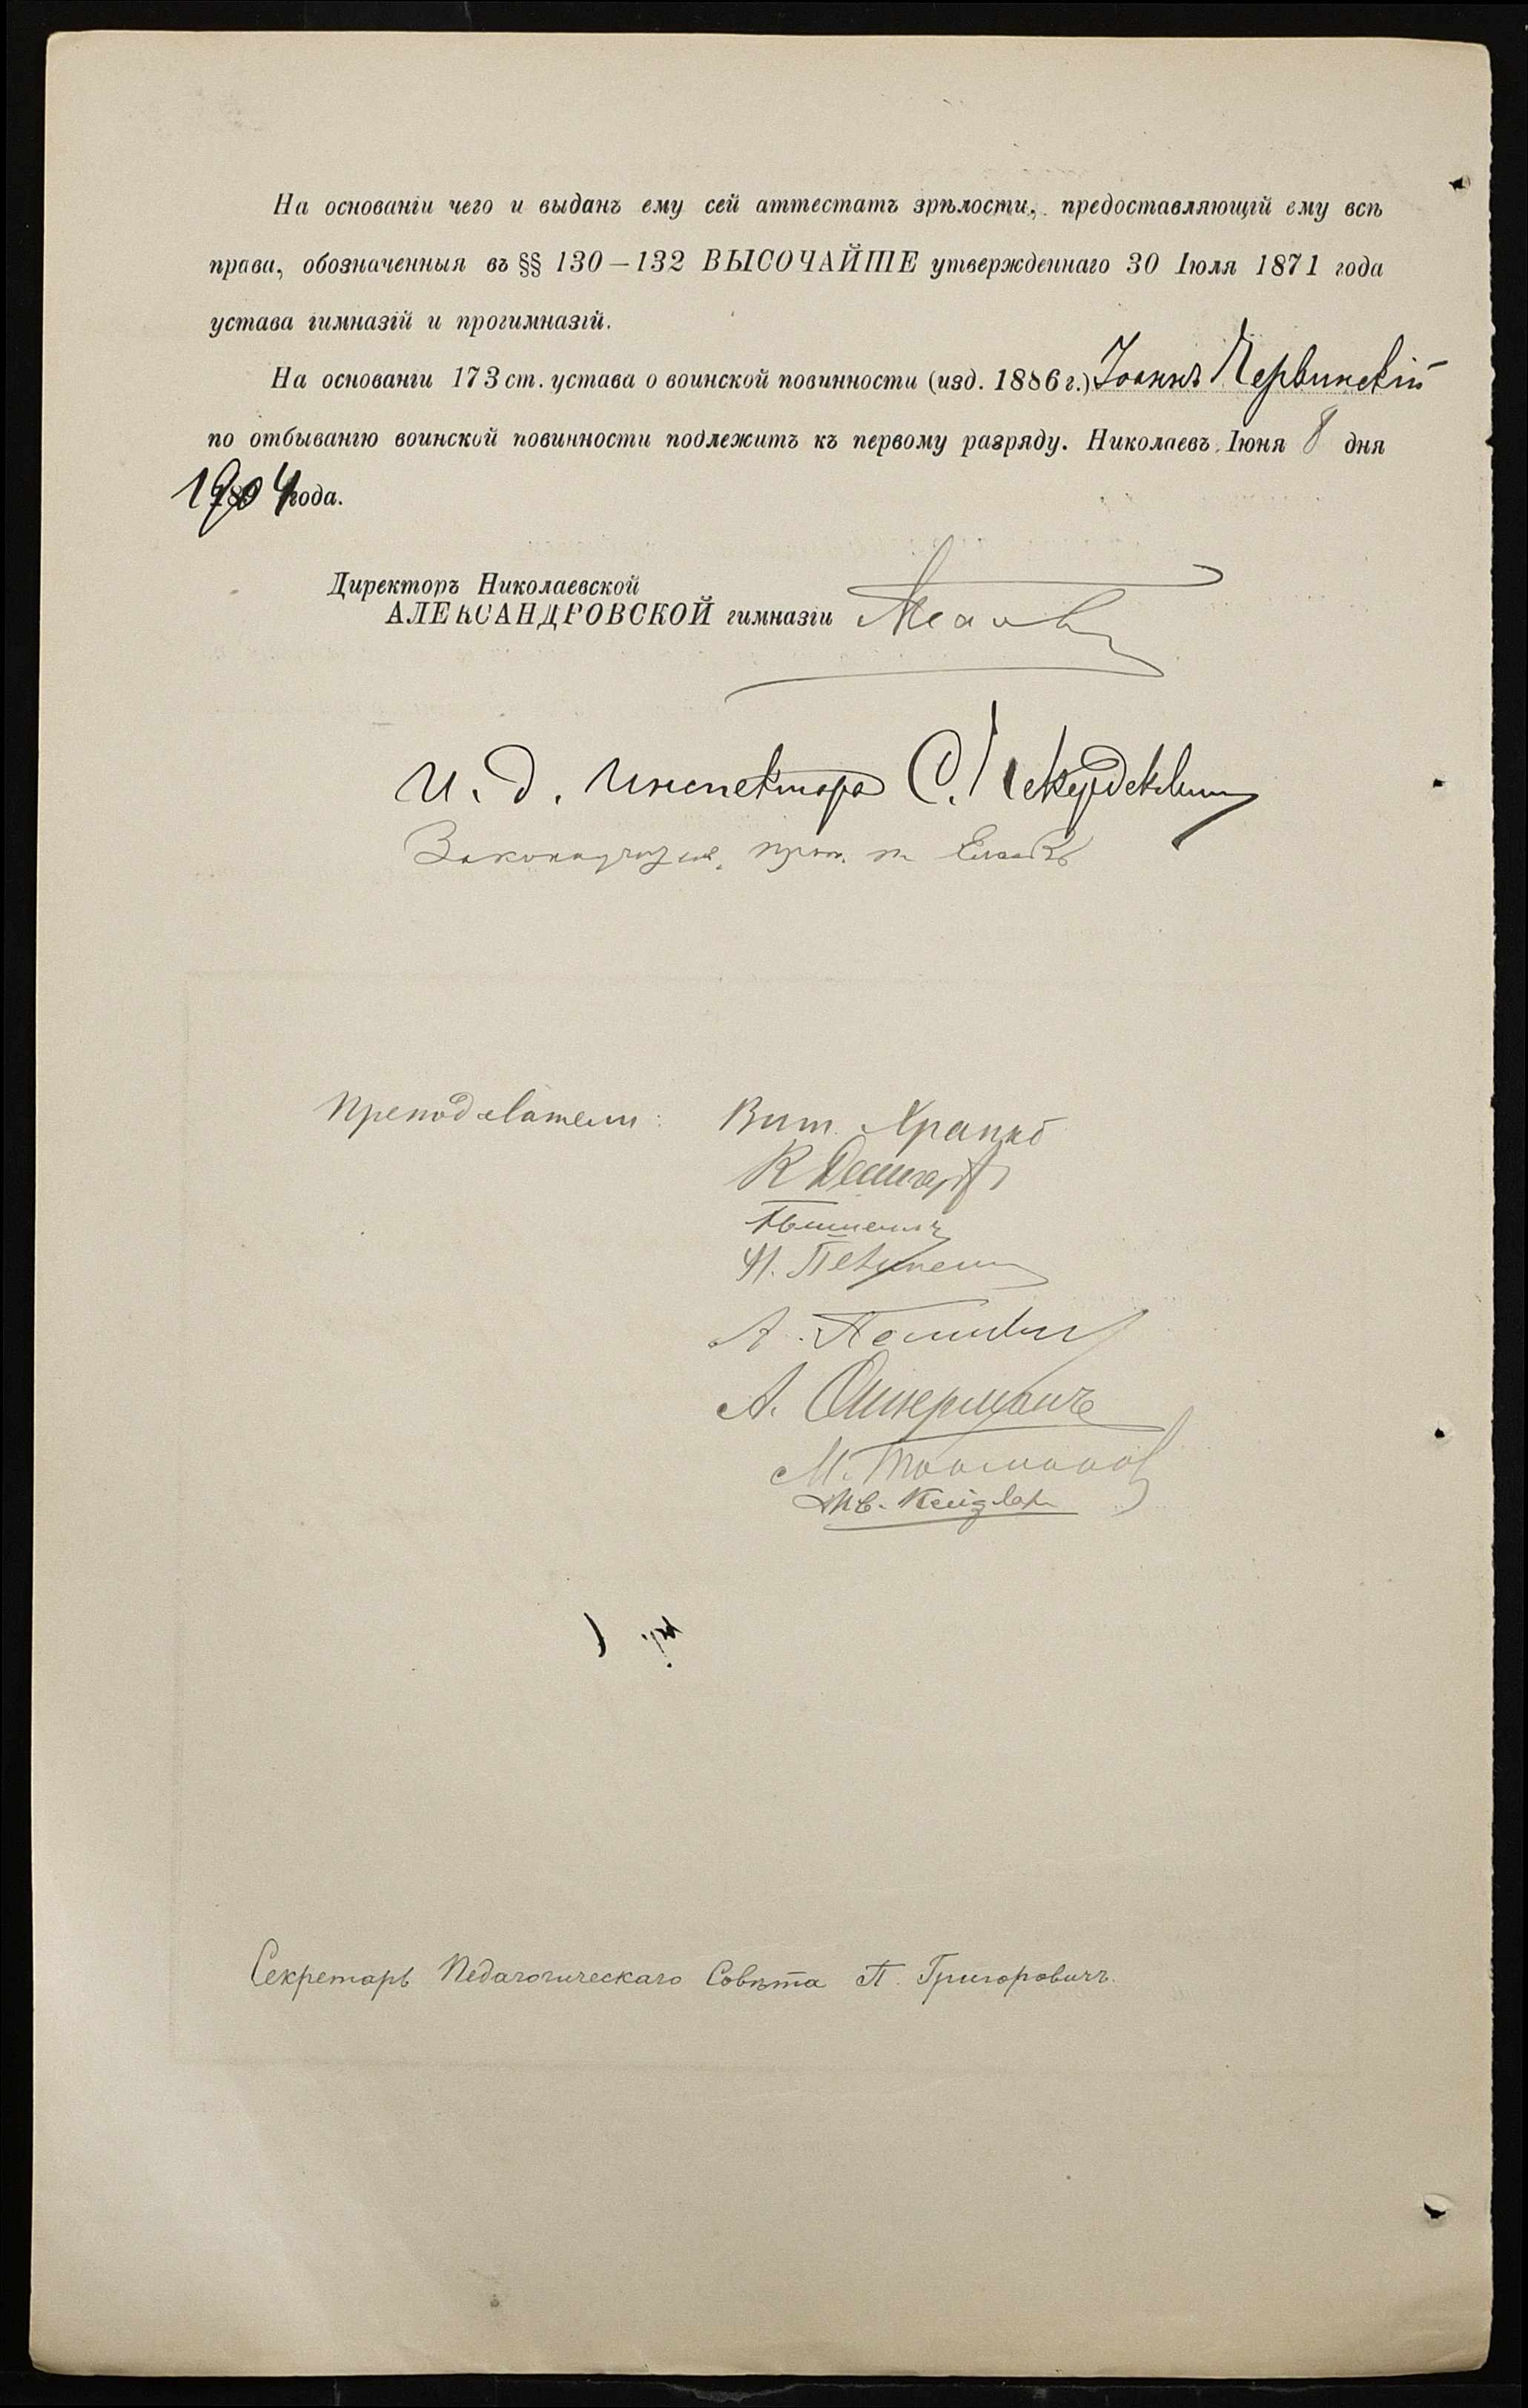 На основаніи чего и выданъ ему сей аттестатъ зрѣлости, предоставляющій ему всѣ
права, обозначенныя въ §§ 130—132 ВЫСОЧАЙШЕ утвержденнаго 30 Іюля 1871 года
устава гимназій и прогимназій.
На основаніи 173 ст. устава о воинской повинности (изд. 1886 г.) Іоаннъ Червинскій
по отбыванію воинской повинности подлежитъ къ первому разряду. Николаевъ, Іюня 8 дня
1904 года.
Директоръ Николаевской
АЛЕКСАНДРОВСКОЙ гимназіи
И. д. Инспектора С.
Законоучитель, прот.
Преподаватели: Вит. Храпко
К
Н.
А.
А.
М.
Секретарь Педагогическаго Совѣта П. Григоровичъ.